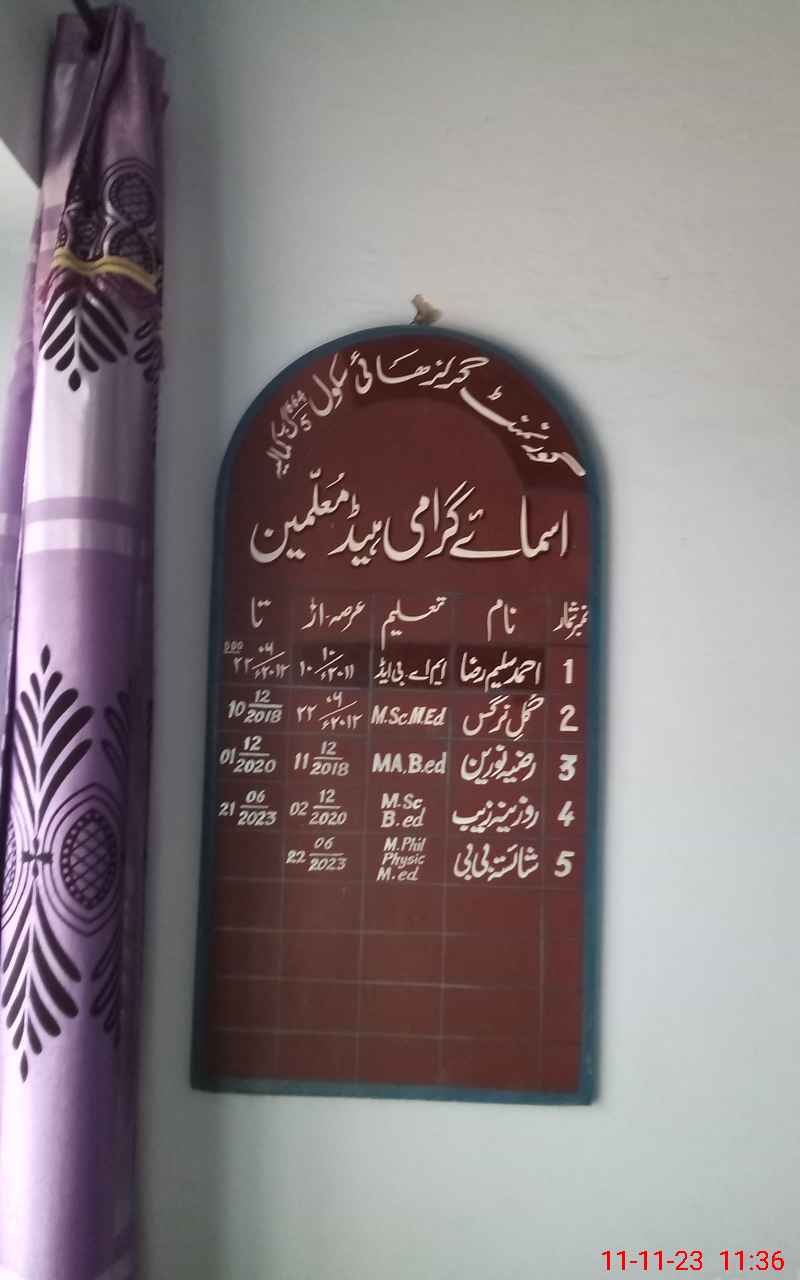 گورنمنٹ گرلز ہائی سکول 664/5 گ ب کمالیہ
اسمائے گرامی ہیڈ معلّمین
نمبر شمار نام تعلیم عرصہ از تا
1 احمد سلیم رضا ایم اے بی ایڈ ۱۰ ۱۰/۲۰۱۱ء ۲۲ ۰۶/۲۰۱۲ء DDO
2 گل نرگس M.Sc M.Ed ۲۲ ۰۶/۲۰۱۲ء 10 12/2018
3 رضیہ نورین MA, B.ed 11 12/2018 01 12/2020
4 روزینہ زیب M.Sc B.ed 02 12/2020 21 06/2023
5 شائستہ بی بی M.Phil Physic M.ed 22 06/2023
11-11-23 11:36